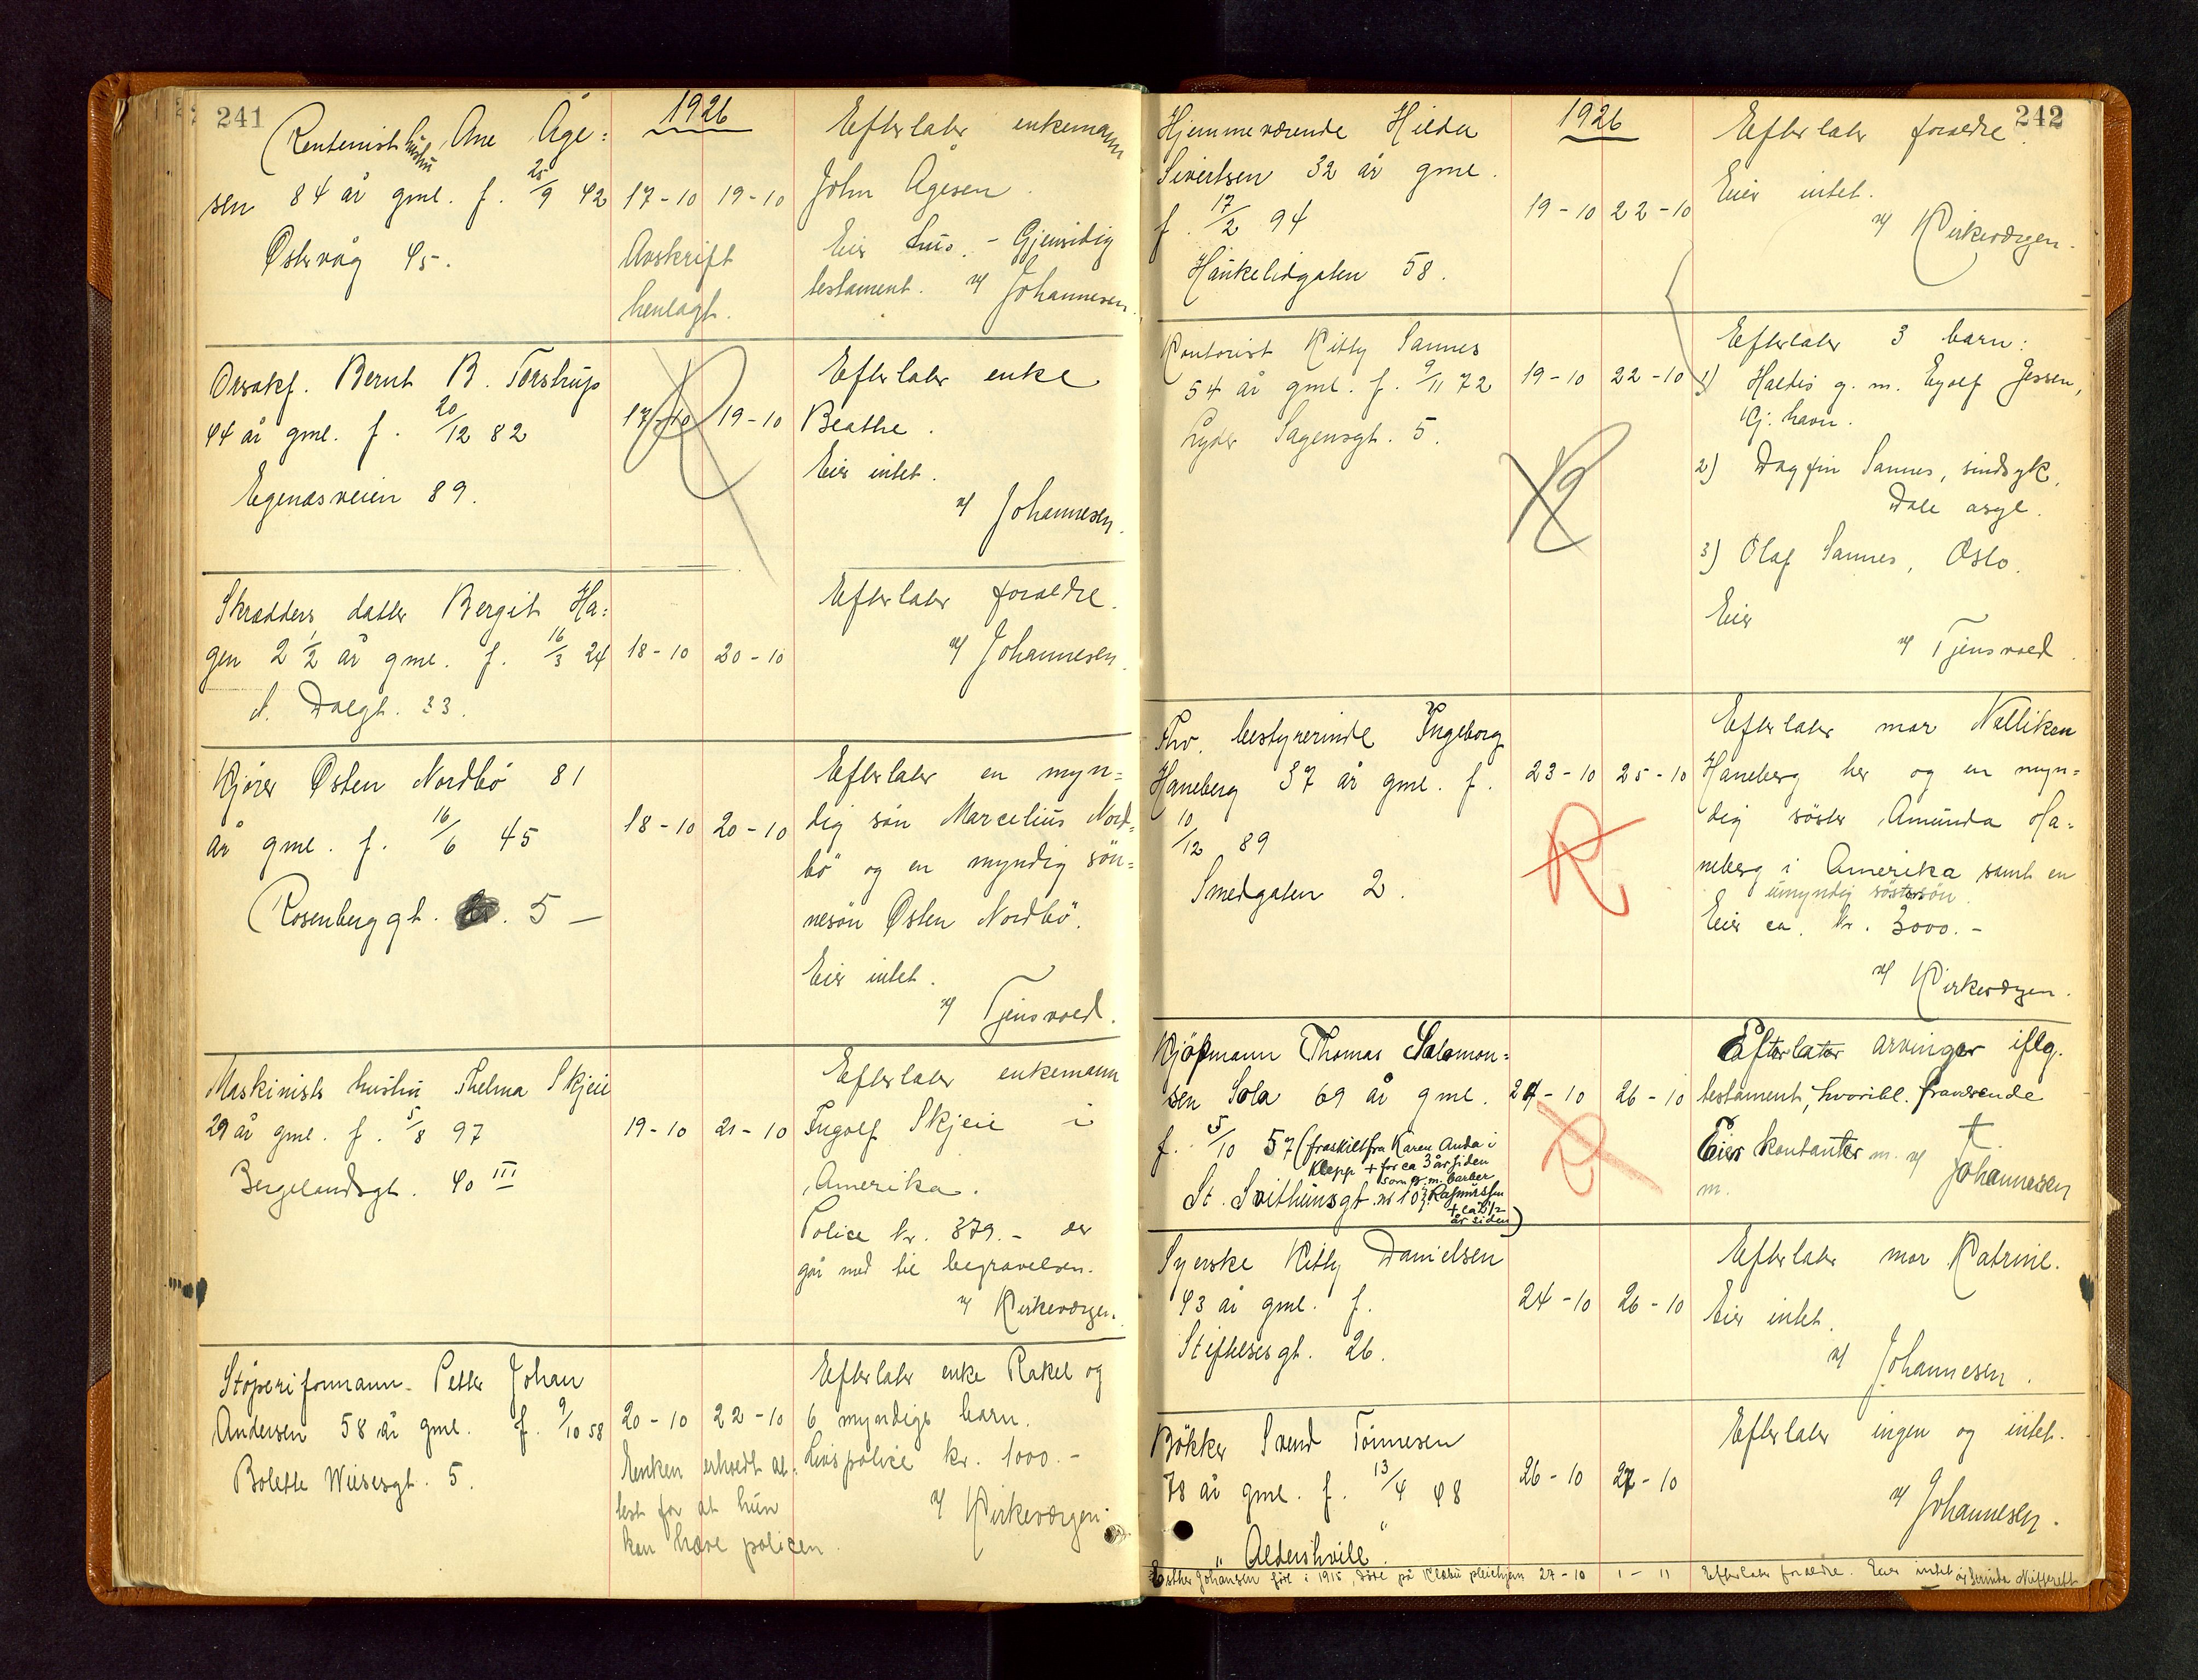 241
1926
Rentenist hustru Ane Åge:
sen 84 år gml. f. 25/9 42
Østervåg 45.
17-10 19-10
Avskrift
henlagt.
Efterlater enkemann
John Ågesen.
Eier hus. - Gjensidig
testament. v/ Johannesen.
Bernt B. Torstrup
44 år gml. f. 20/12 82
Egenæsveien 89.
17-10 19-10
Efterlater enke
Beathe.
Eier intet.
v/ Johannesen.
Skrædders datter Bergit Ha:
gen 2 1/2 år gml. f. 16/3 24
N. Dalgt. 33.
18-10 20-10
Efterlater forældre.
v/ Johannesen.
Kjører Østen Nordbö 81
år gml. f. 16/6 45
Rosenberggt. 5 -
18-10 20-10
Efterlater en myn=
dig sön Marcelius Nord=
bö og en myndig sön=
nesön Østen Nordbö.
Eier intet.
v/ Tjensvold.
Maskinists hustru Thelma Skjeie
29 år gml. f. 5/8 97
Bergelandsgt. 40 III
19-10 21-10
Efterlater enkemann
Ingolf Skjeie i
Amerika.
Police kr. 379.- der
går med til begravelsen.
v/ Kirkeværgen.
Støperiformann Petter Johan
Andersen 58 år gml. f. 9/10 58
Bolette Wiesesgt. 5.
20-10 22-10
Enken erholdt at:
test for at hun
kan hæve policen.
Efterlater enke Rakel og
6 myndige barn.
Livspolice kr. 1000.-
v/ Kirkeværgen.
242
1926
Hjemmeværende Hilda
Sivertsen 32 år gml.
f. 17/2 94
Haukelidgaten 58.
19-10 22-10
Efterlater forældre.
Eier intet.
v/ Kirkeværgen.
Kontorist Kitty Sannes
54 år gml. f. 9/11 72
Lyder Sagensgt. 5.
19-10 22-10
Efterlater 3 barn:
1) Haldis g. m. Eyolf Jessen,
Kj.havn.
2) Dagfin Sannes, sindsyk,
Dale asyl.
3) Olaf Sannes, Oslo.
Eier
v/ Tjensvold.
Fhv. bestyrerinde Ingeborg
Haneberg 37 år gml. f.
10/12 89
Smedgaten 2.
23-10 25-10
Efterlater mor Nelliken
Haneberg her og en myn=
dig söster Amunda Ha=
neberg i Amerika samt en
umyndig söstersön.
Eier ca. kr. 3000.-
v/ Kirkeværgen.
Kjöpmann Thomas Salomon=
sen Sola 69 år gml.
f. 5/10 57 (fraskilt fra Karen Anda i
Klepp + for ca 3 år siden
som g. m. barber
Rasmussen
+ ca 2 1/2
år siden)
St. Svithunsgt. nr 10
24-10 26-10
Efterlater arvinger iflg.
testament, hvoribl. fraværende
Eier kontanter m. v/ Johannesen
m.
Syerske Kitty Danielsen
43 år gml. f.
Stiftelsesgt. 26.
24-10 26-10
Efterlater mor Katrine.
Eier intet.
v/ Johannesen.
Bökker Svend Tönnesen
78 år gml. f. 13/4 48
"Aldershvile".
26-10 27-10
Efterlater ingen og intet.
v/ Johannesen.
Esther Johansen föd i 1915, döde på pleiehjem 27-10 1-11 Efterlater forældre. Eier intet